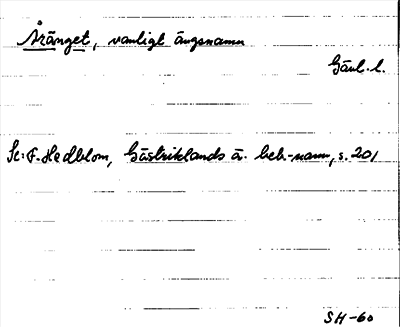 Åränget, vanligt ängsnamn
Gävl. l.
Se: F. Hedblom, Gästriklands ä. beb-namn, s. 201
SH-60